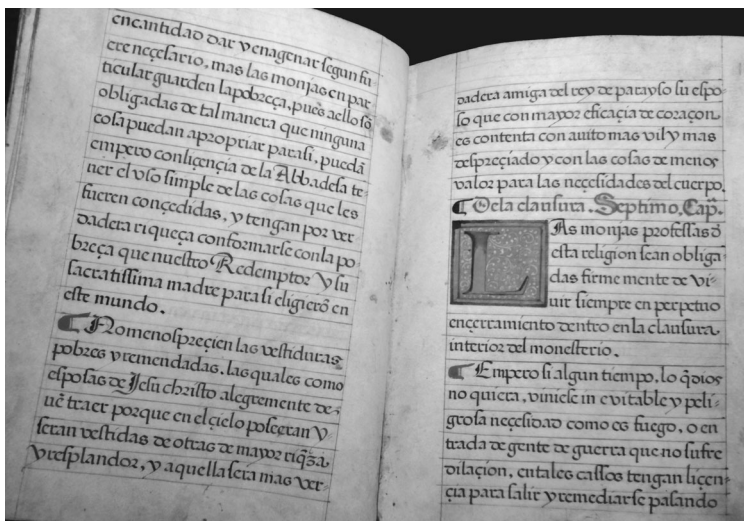 encantidad dar y enagenar segun fu
ere neçesario, mas las monjas en par
ticular guarden la pobreça, pues a ello sō
obligadas de tal manera que ninguna
cosa puedan apropriar para si, puedā
empero con liçençia de la Abbadesa te
ner el vso simple de las cosas que les
fueren conçedidas, y tengan por ver
dadera riqueça conformarse con la po
breça que nuestro Redemptor y su
sacratissima madre para si eligierō en
este mundo.
¶ No menospreçien las vestiduras
pobres y remendadas, las quales como
esposas de Jesu christo alegremente de-
uē traer porque en el çielo poseeran y
seran vestidas de otras de mayor riq̄za
y resplandor, y aquella sera mas ver-
dadera amiga del rey de parayso su espo-
so que con mayor eficaçia de coraçon
es contenta con auito mas vil y mas
despreçiado y con las cosas de menos
valor para las neçesidades del cuerpo.
¶ De la clausura. Septimo. Cap̄.
LAs monjas professas d̄
esta religion sean obliga
das firme mente de vi-
uir siempre en perpetuo
ençerramiento dentro en la clausura
interior del monesterio.
¶ Empero si algun tiempo, lo q̄ dios
no quiera, viniese in evitable y peli-
grosa neçesidad como es fuego, o en
trada de gente de guerra que no sufre
dilaçion, en tales cassos tengan liçen-
çia para salir y remediarse pasando